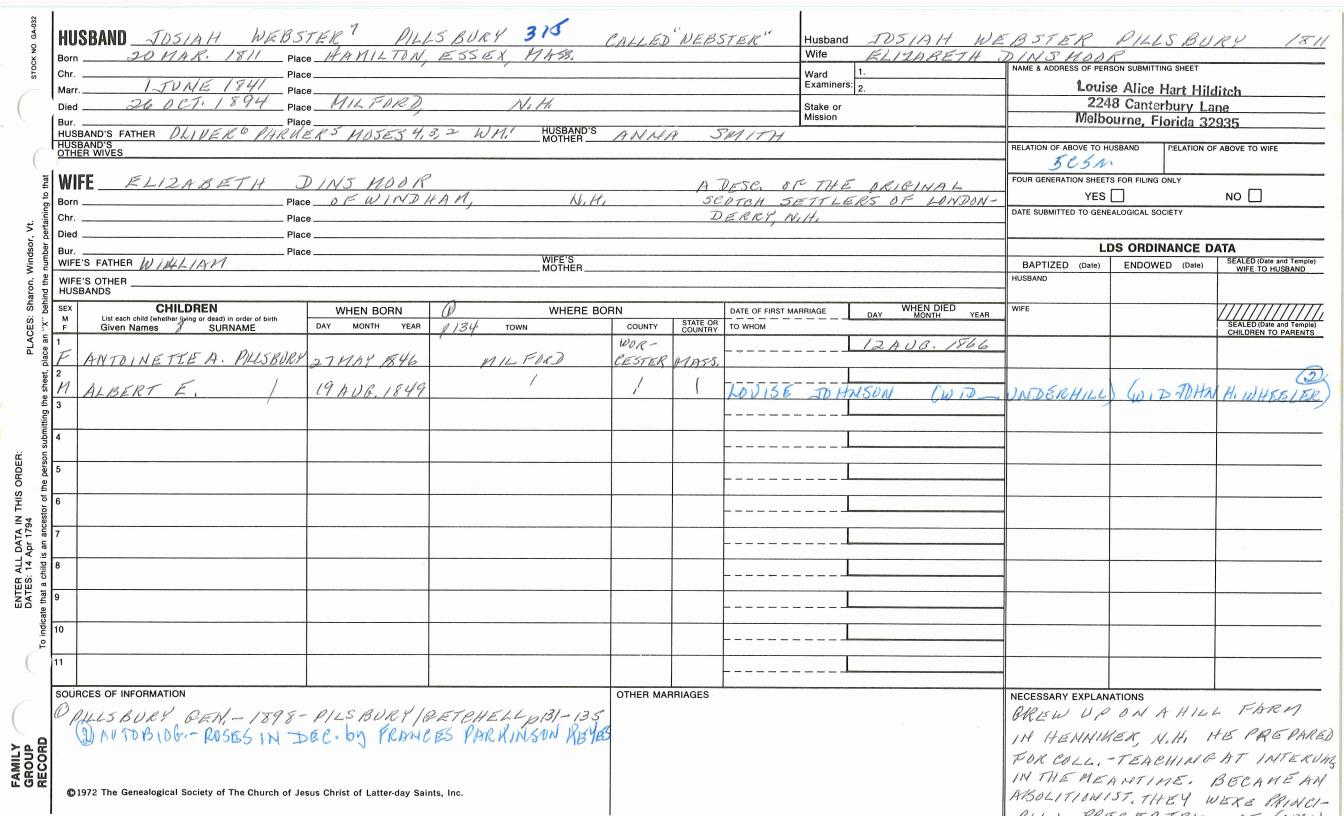 STOCK NO. GA-032
HUSBAND JOSIAH WEBSTER⁷ PILLSBURY 315 CALLED "WEBSTER"
Born 20 MAR. 1811 Place HAMILTON, ESSEX, MASS.
Chr. Place
Marr. 1 JUNE 1841 Place
Died 26 OCT. 1894 Place MILFORD, N.H.
Bur. Place
HUSBAND'S FATHER OLIVER⁶ PARKER⁵ MOSES 4,3,2 WM.¹ HUSBAND'S MOTHER ANNA SMITH
HUSBAND'S OTHER WIVES
Husband JOSIAH WEBSTER PILLSBURY 1811
Wife ELIZABETH DINSMOOR
Ward Examiners: 1.
2.
Stake or Mission
NAME & ADDRESS OF PERSON SUBMITTING SHEET
Louise Alice Hart Hilditch
2248 Canterbury Lane
Melbourne, Florida 32935
RELATION OF ABOVE TO HUSBAND RELATION OF ABOVE TO WIFE
FOUR GENERATION SHEETS FOR FILING ONLY
YES NO
DATE SUBMITTED TO GENEALOGICAL SOCIETY
WIFE ELIZABETH DINSMOOR
Born Place OF WINDHAM, N.H.
Chr. Place
Died Place
Bur. Place
A DESC. OF THE ORIGINAL
SCOTCH SETTLERS OF LONDON-
DERRY, N.H.
WIFE'S FATHER WILLIAM WIFE'S MOTHER
WIFE'S OTHER HUSBANDS
LDS ORDINANCE DATA
BAPTIZED (Date) ENDOWED (Date) SEALED (Date and Temple) WIFE TO HUSBAND
HUSBAND
WIFE
SEALED (Date and Temple) CHILDREN TO PARENTS
SEX M F
CHILDREN
List each child (whether living or dead) in order of birth
Given Names 8 SURNAME
WHEN BORN
DAY MONTH YEAR
① p134
WHERE BORN
TOWN COUNTY STATE OR COUNTRY
DATE OF FIRST MARRIAGE
TO WHOM
WHEN DIED
DAY MONTH YEAR
1 F ANTOINETTE A. PILLSBURY 27 MAY 1846 MILFORD WOR-CESTER MASS. 12 AUG. 1866
2 M ALBERT E. / 19 AUG. 1849 / / / LOUISE JOHNSON (WID__UNDERHILL) (WID JOHN H. WHEELER) ②
3
4
5
6
7
8
9
10
11
SOURCES OF INFORMATION
① PILLSBURY GEN.- 1898- PILSBURY/GETCHELL p131-135
② AUTOBIOG.- ROSES IN DEC. by FRANCES PARKINSON KEYES
©1972 The Genealogical Society of The Church of Jesus Christ of Latter-day Saints, Inc.
OTHER MARRIAGES
NECESSARY EXPLANATIONS
GREW UP ON A HILL FARM
IN HENNIKER, N.H. HE PREPARED
FOR COLL.-TEACHING AT INTERVALS
IN THE MEANTIME. BECAME AN
ABOLITIONIST. THEY WERE PRINCI-
ENTER ALL DATA IN THIS ORDER:
DATES: 14 Apr 1794
PLACES: Sharon, Windsor, Vt.
To indicate that a child is an ancestor of the person submitting the sheet, place an "X" behind the number pertaining to that
FAMILY
GROUP
RECORD